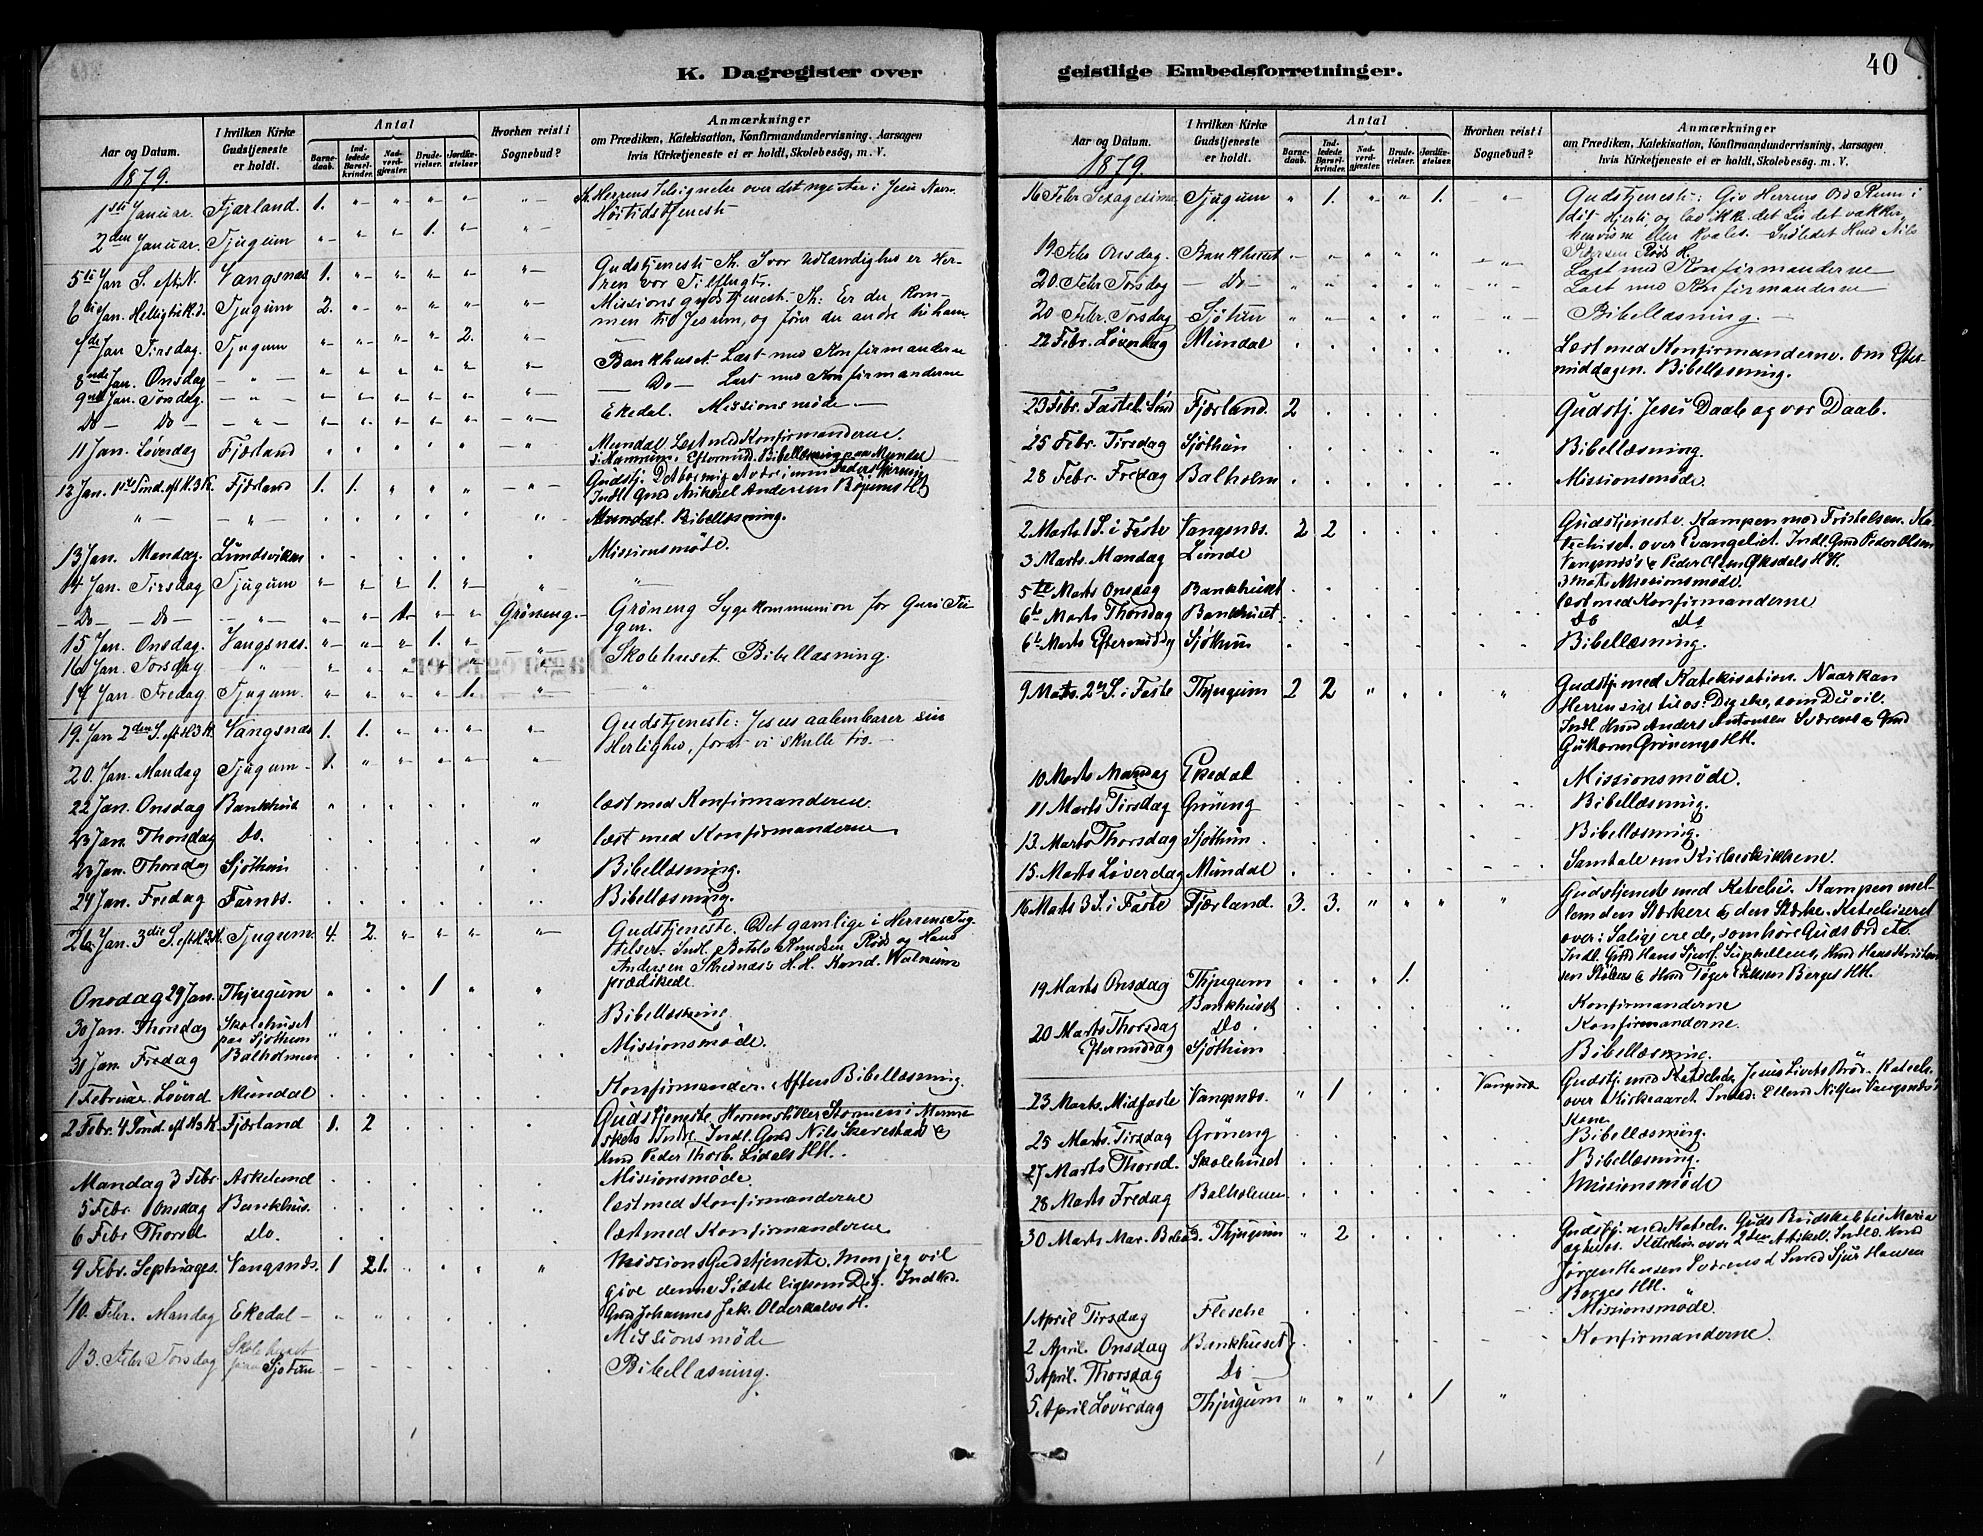 K. Dagregister over
Aar og Datum.
I hvilken Kirke Gudstjeneste er holdt.
Antal
Barnedaab.
Indledede Barselkvinder.
Nadverdgjester.
Brudevielser.
Jordfæstelser.
Hvorhen reist i Sognebud?
Anmærkninger
om Prædiken, Katekisation, Konfirmandundervisning. Aarsagen
hvis Kirketjeneste ei er holdt, Skolebesøg, m. V.
1879.
1ste Januar. Fjærland. 1. Th. Herrens Velsignelse over det nye Aar i Jesu Navn
Høitidstjeneste
2den Januar. Tjugum 1.
5te Jan S. eft N. Vangsnæs 1. Gudstjeneste Th. Vor Udlændighed er Her-
ren vor Tilflugt.
6te Jan. Hellig tre K. d. Tjugum 2. Missionsgudstjeneste. Th: Er du kom-
men til Jesum, og fører du andre til ham
7de Jan Tirsdag. Tjugum 2.
8nde Jan. Onsdag Bankhuset. Læst med Konfirmanderne
9nde Jan. Torsdag. Do Læst med Konfirmanderne
Do Do Ekedal. Missionsmøde.
11 Jan. Løverdag Fjærland Mundal Læst med Konfirmanderne.
Eftermid. Bibellæsning paa Mundal
12 Jan. 1ste Sønd. eft H.3.K. Fjærland 1. 1. Gudstj.
Indl Gmd Mikkel Andersen Bøyums H
Mundal. Bibellæsning.
13 Jan. Mandag. Lundsviken Missionsmøde.
14 Jan. Tirsdag Tjugum 1.
Do Do 1. Grøneng. Grøneng Sygekommunion for Guri Tu-
gen.
15 Jan. Onsdag. Vangsnæs. 1.
16 Jan. Torsdag Skolehuset. Bibellæsning.
17 Jan Fredag Tjugum. 1.
19. Jan 2den S. eft H3K. Vangsnæs 1. 1. Gudstjeneste: Jesus aabenbarer sin
Herlighed, forat vi skulle tro.
20. Jan. Mandag Tjugum 1.
22 Jan. Onsdag Bankhus læst med Konfirmanderne
23 Jan. Thorsdag Do. læst med Konfirmanderne
23 Jan. Thorsdag Sjøthun Bibellæsning.
24 Jan. Fredag Farnæs. Bibellæsning.
26 Jan. 3die S. eft H3K. Tjugum. 4. 2 Gudstjeneste. Det gamle i Herrens Tug-
telser. Indl. Botolv Knudsen Røds og Hans
Andersen Skrednæs's H. H. Kand. Walnum
prædikede.
Onsdag 29 Jan. Thjugum 1
30 Jan. Thorsdag Skolehuset
paa Sjøthun Bibellæsning
31 Jan. Fredag Balholmen Missionsmøde.
1 Februar Løverd Mundal Konfirmander. Aften Bibellæsning.
2 Febr. 4 Sønd. eft H3K. Fjærland 1. 2 Gudstjeneste. Herren stiller Stormen i Menne-
skets Indre. Indl. Gmd Nils Skarestad &
Hmd Peder Thorb. Lidals HH.
Mandag 3 Febr Askelund Missionsmøde.
5 Febr. Onsdag Bankhus. læst med Konfirmanderne
6 Febr Thorsd Do. læst med Konfirmanderne
9 Febr. Septuages. Vangsnæs. 1 21. Missions Gudstjeneste. Men jeg vil
give denne Sidste ligesom Dig. Indled.
Gmd Johannes Jak. Olderdalens H.
10. Febr. Mandag Ekedal Missionsmøde
13. Febr Torsdag Skolehuset
paa Sjotun Bibellæsning.
geistlige Embedsforretninger.
40
Aar og Datum.
I hvilken Kirke Gudstjeneste er holdt.
Antal
Barnedaab.
Indledede Barselkvinder.
Nadverdgjester.
Brudevielser.
Jordfæstelser.
Hvorhen reist i Sognebud?
Anmærkninger
om Prædiken, Katekisation, Konfirmandundervisning. Aarsagen
hvis Kirketjeneste ei er holdt, Skolebesøg. m. V.
1879.
16 Febr Sexagesima Tjugum 1. 1. Gudstjeneste: Giv Herrens Ord Rum i
dit Hjerte og lad ikke det Liv det vækker,
henvisne eller kvæles. Indledet Hmd Nils
Petersen Røds H.
19 Febr Onsdag. Bankhuset Læst med Konfirmanderne
20 Febr Torsdag Do Læst med Konfirmanderne
20 Febr. Torsdag Sjøtun Bibellæsning.
22 Febr. Løverdag Mundal Læst med Konfirmanderne. Om Efter-
middagen. Bibellæsning.
23 Febr. Fastel. Sønd Fjærland. 2 Gudstj. Jesu Daab og vor Daab.
25 Febr. Tirsdag Sjøthun Bibellæsning.
28 Febr. Fredag Balholm Missionsmøde.
2 Marts 1 S. i Faste Vangsnæs. 2 2 Gudstjeneste. Kampen mod Fristelsen. Ka-
techiset. over Evangeliet. Indl. Gmd Peder Olsen
Vangsnæs's & Peder Olsen Eksdals HH.
3 Marts. Mandag Lunde 3 Mats Missionsmøde.
5te Marts Onsdag Bankhuset læst med Konfirmanderne
6te Marts Thorsdag Bankhuset Do Do
6te Marts Eftermiddag Sjøthun Bibellæsning.
9 Marts. 2en S. i Faste Thjugum 2 2 Gudstj. med Katekisation. Naar kan
Herren sige til os: Dig ske, som Du vil.
Indl. Hmd Anders Antonsen Sværens & Gmd
Guttorm Grønengs HH.
10 Marts Mandag Ekedal Missionsmøde.
11 Marts Tirsdag Grøneng Bibellæsning.
13. Marts Thorsdag Sjøthun. Bibellæsning.
15. Marts Løverdag Mundal Samtale om Kirkeskikkene.
16 Marts 3 S. i Faste Fjærland. 3. 3. Gudstjeneste med Katechis. Kampen mel-
lem den Stærkere & den Stærke. Katechiseret
over: Salige ere de, som høre Guds Ord etc.
Indl. Gmd Hans Sjurs. Suphellens, Hmd Hans Kristian-
sen & Hmd Tøger Eriksen Berges HH.
19 Marts Onsdag Thjugum 1.
Bankhuset Konfirmanderne
20 Marts Thorsdag Do Konfirmanderne.
Eftermiddag Sjøthun Bibellæsning.
23 Marts. Midfaste Vangsnæs. 1 Vangsnæs Gudstj. med Katechis. Jesus Livets Brød. Katech.
over Kirkeaaret. Indled: Ellend Nilsen Vangsnæs's
Kone.
25 Marts. Tirsdag Grøneng Bibellæsning.
27 Marts Thorsd. Skolehuset Bibellæsning.
28 Marts Fredag Balholmen Missionsmøde
30 Marts Mar. Bebud. Thjugum 2 Gudstj. med Katech. Guds Budskab til Maria
og til os. Katechis. over 2den Artikel. Indled. Hmd
Jørgen Hansen Sværens & Smed Sjur Hansen
Berges HH.
1 April Tirsdag Flesche Missionsmøde.
2 April. Onsdag Bankhuset Konfirmanderne.
3 April. Thorsdag Do
5 April Løverdag Thjugum 1